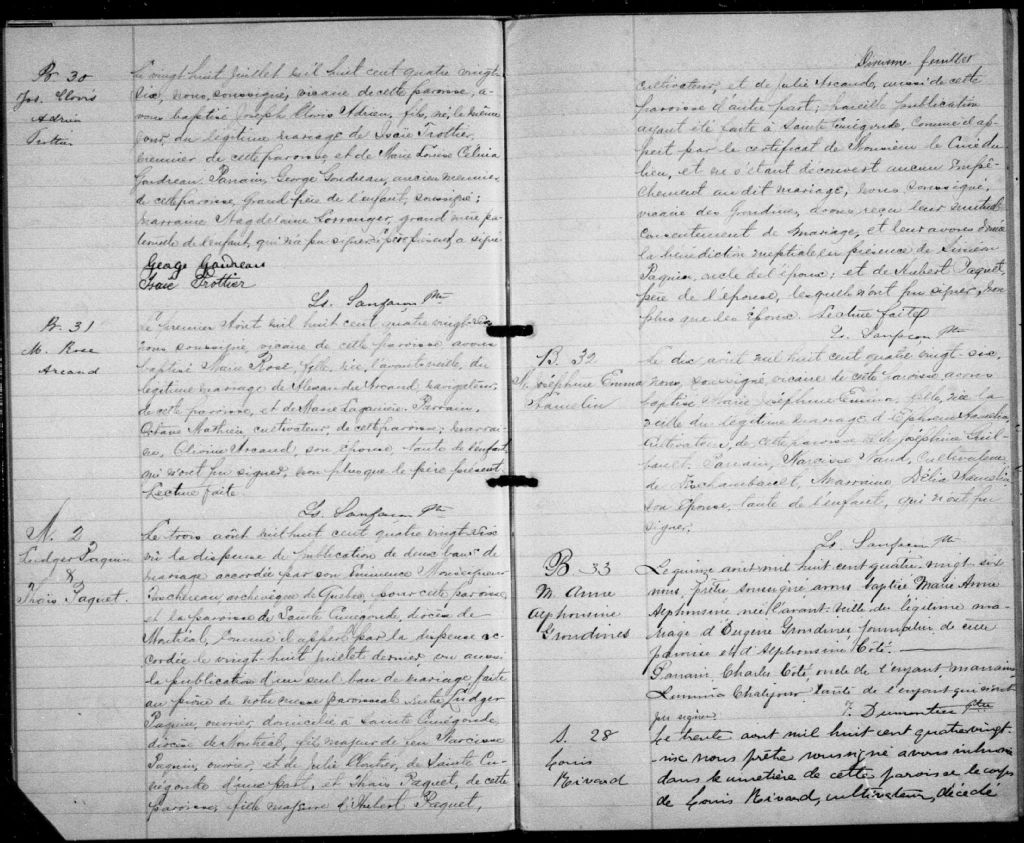 B 30
Jos. Clovis
Adrien
Trottier
Le vingt-huit juillet mil huit cent quatre vingt-
six, nous, soussigné, vicaire de cette paroisse, a-
vons baptisé Joseph Clovis Adrien, fils, né, le même
jour, du légitime mariage de Isaïe Trottier,
de cette paroisse, et de Marie Louise Célina
Gaudreau. Parrain, George Gaudreau, ancien
de cette paroisse, grand-père de l'enfant, soussigné;
marraine Magdelaine Lorranger, grand'mère, pa-
ternelle de l'enfant, qui n'a pu signer, père présent, a signé
George Gaudreau
Isaïe Trottier
Ls. Sanfaçon Ptre
B. 31
M. Rose
Arcand
Le premier Août mil huit cent quatre vingt-six
nous soussigné, vicaire de cette paroisse avons
baptisé Marie Rose, fille, née, l'avant-veille, du
légitime mariage de Alexandre Arcand navigateur,
de cette paroisse, et de Marie Laganière. Parrain,
Octave Mathieu cultivateur, de cette paroisse; marrai-
ne, Arcand, son épouse, tante de l'enfant
qui n'ont pu signer, non plus que le père présent.
Lecture faite.
Ls. Sanfaçon Ptre
M. 2
Ludger Paquin
&
Thaïs Paquet.
Le trois août mil huit cent quatre vingt-six
vu la dispense de publication de deux bans de
mariage accordée par son Eminence Monseigneur
Taschereau, archevêque de Québec, pour cette paroisse,
et la paroisse de Sainte Cunégonde, diocèse de
Montréal, comme il appert par la dispense ac-
cordée le vingt-huit juillet dernier vu aussi
la publication d'un seul ban de mariage faite
au prône de notre messe paroissiale entre Ludger
Paquin, ouvrier, domicilié à Sainte Cunégonde,
diocèse de Montréal, fils majeur de feu Narcisse
Paquin, ouvrier, et de Julie Cloutier, de Sainte Cu-
négonde d'une part, et Thaïs Paquet, de cette
paroisse, fille majeure d'Hubert Paquet,
feuillet
cultivateur, et de Julie Arcand, aussi de cette
paroisse d'autre part; pareille publication
ayant été faite à Sainte Cunégonde, comme il ap-
pert par le certificat de Monsieur le Curé du
lieu, et ne s'étant découvert aucun empê-
chement au dit mariage, nous soussigné,
vicaire des Grondines, avons reçu leur mutuel
consentement de mariage, et leur avons donné
la bénédiction nuptiale en présence de Siméon
Paquin, oncle de l'époux; et de Hubert Paquet,
père de l'épouse, lesquels n'ont pu signer, non
plus que les époux. Lecture faite
Ls. Sanfaçon Ptre
B. 32
M. Joséphine Emma
Hamelin
Le dix août mil huit cent quatre vingt-six,
nous, soussigné, vicaire de cette paroisse avons
baptisé Marie Joséphine Emma, fille, née la
veille du légitime mariage d'Ephrem Hamelin
cultivateur, de cette paroisse et de Joséphine Guil-
bault. Parrain, Narcisse Naud, cultivateur,
de Deschambault, Marraine, Délia Hamelin
son épouse, tante de l'enfant, qui n'ont pu
signer.
Ls. Sanfaçon Ptre
B 33
M. Anne
Alphonsine
Grondines
Le quinze août mil huit cent quatre-vingt-six
nous, prêtre soussigné avons baptisé Marie Anne
Alphonsine née l'avant-veille du légitime ma-
riage d'Eugène Grondines journalier de cette
paroisse et d'Alphonsine Côté.
Parrain Charles Côté, oncle de l'enfant, marraine
Chatyour tante de l'enfant qui n'ont
pu signer.
F. Dumontier Ptre
S. 28
Louis
Rivard
Le trente août mil huit cent quatre vingt-
six nous prêtre soussigné avons inhumé
dans le cimetière de cette paroisse le corps
de Louis Rivard, cultivateur, décédé